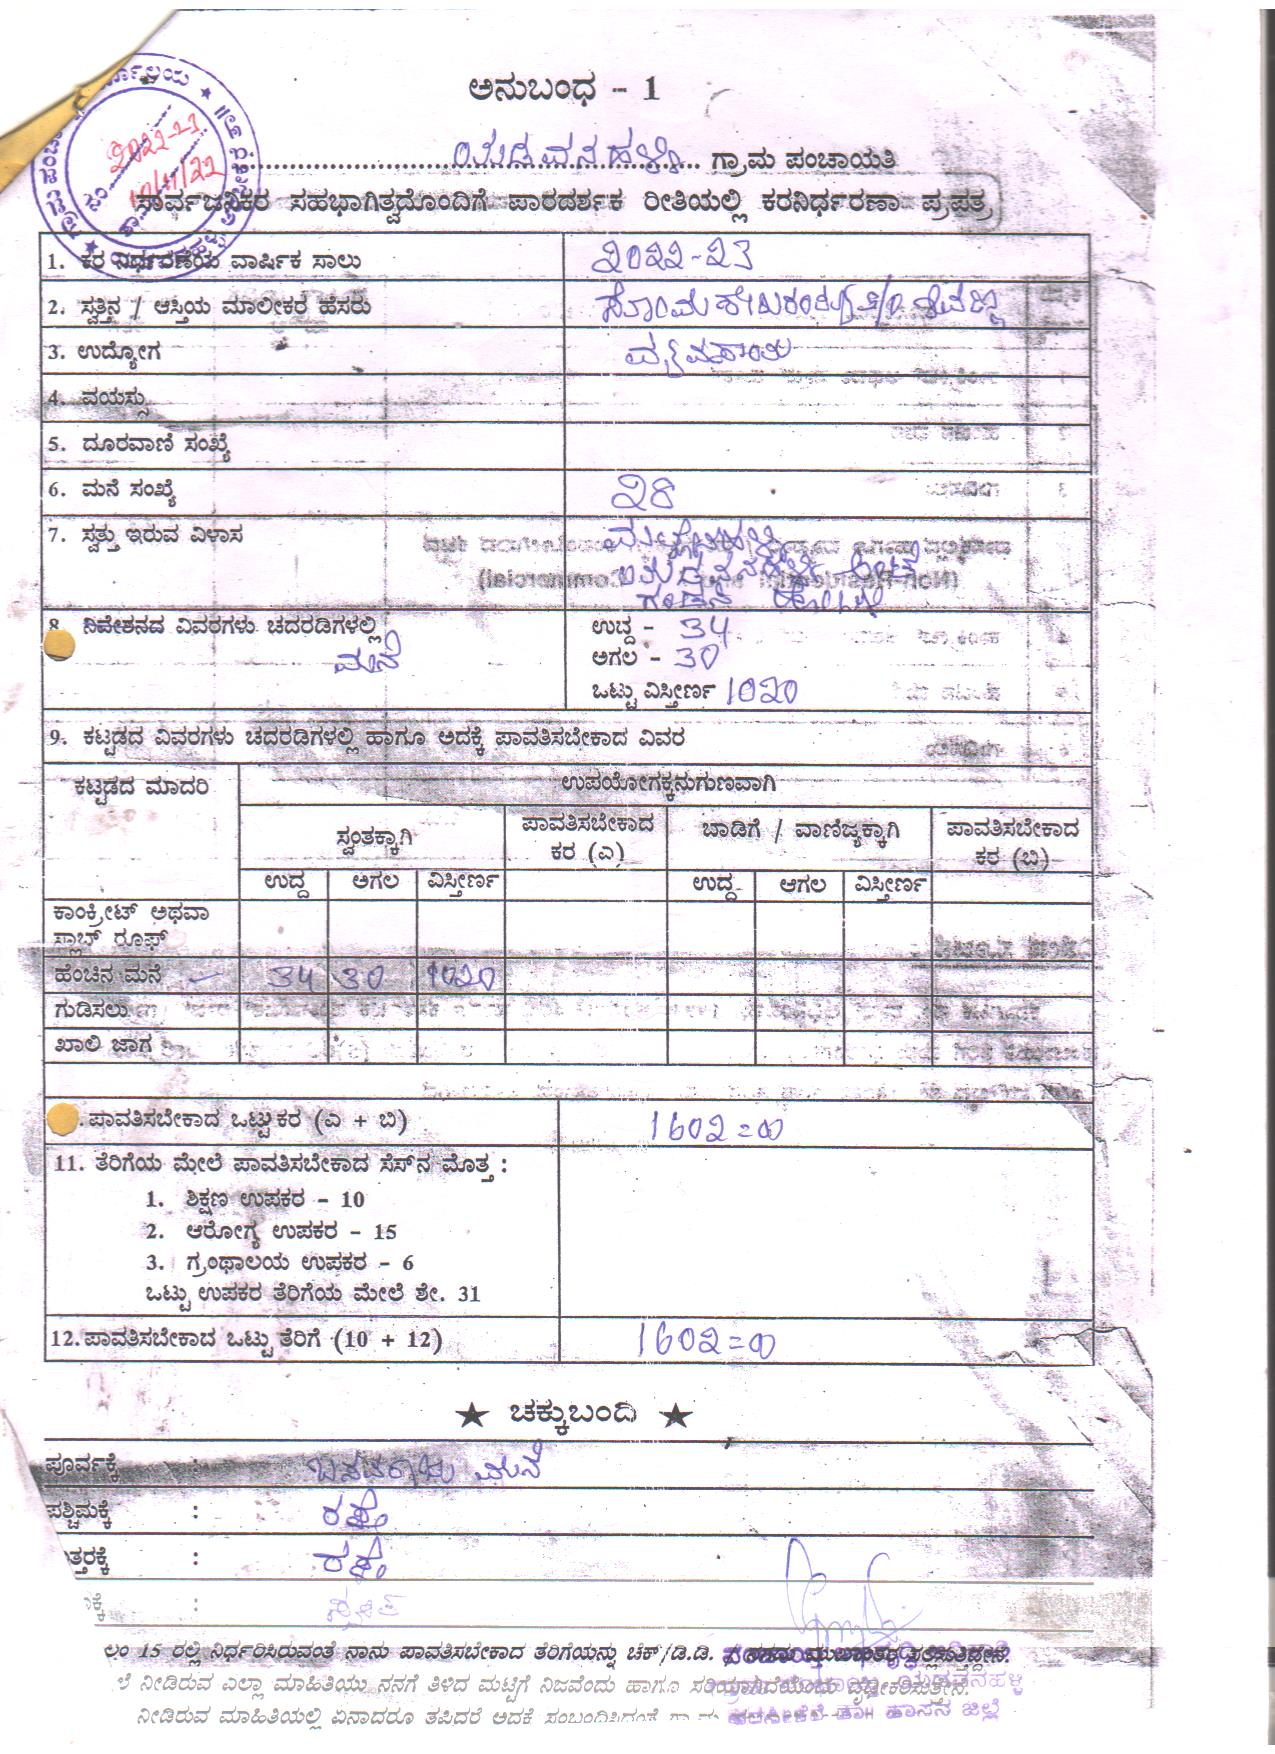 ಅನುಬಂಧ - 1
ಯಡವನಹಳ್ಳಿ ಗ್ರಾಮ ಪಂಚಾಯತಿ
ಸಾರ್ವಜನಿಕರ ಸಹಭಾಗಿತ್ವದೊಂದಿಗೆ ಪಾರದರ್ಶಕ ರೀತಿಯಲ್ಲಿ ಕರನಿರ್ಧರಣಾ ಪ್ರಪತ್ರ
1. ಕರ ನಿರ್ಧರಣೆಯ ವಾರ್ಷಿಕ ಸಾಲು 2022-23
2. ಸ್ವತ್ತಿನ / ಆಸ್ತಿಯ ಮಾಲೀಕರ ಹೆಸರು
3. ಉದ್ಯೋಗ ವ್ಯವಸಾಯ
4. ವಯಸ್ಸು
5. ದೂರವಾಣಿ ಸಂಖ್ಯೆ
6. ಮನೆ ಸಂಖ್ಯೆ 28
7. ಸ್ವತ್ತು ಇರುವ ವಿಳಾಸ
8. ನಿವೇಶನದ ವಿವರಗಳು ಚದರಡಿಗಳಲ್ಲಿ ಉದ್ದ - 34
ಮನೆ ಅಗಲ - 30
ಒಟ್ಟು ವಿಸ್ತೀರ್ಣ 1020
9. ಕಟ್ಟಡದ ವಿವರಗಳು ಚದರಡಿಗಳಲ್ಲಿ ಹಾಗೂ ಅದಕ್ಕೆ ಪಾವತಿಸಬೇಕಾದ ವಿವರ
ಕಟ್ಟಡದ ಮಾದರಿ ಉಪಯೋಗಕ್ಕನುಗುಣವಾಗಿ
ಸ್ವಂತಕ್ಕಾಗಿ ಪಾವತಿಸಬೇಕಾದ ಕರ (ಎ) ಬಾಡಿಗೆ / ವಾಣಿಜ್ಯಕ್ಕಾಗಿ ಪಾವತಿಸಬೇಕಾದ ಕರ (ಬಿ)
ಉದ್ದ ಅಗಲ ವಿಸ್ತೀರ್ಣ ಉದ್ದ ಆಗಲ ವಿಸ್ತೀರ್ಣ
ಕಾಂಕ್ರೀಟ್ ಅಥವಾ
ಸ್ಲಾಬ್ ರೂಫ್
ಹೆಂಚಿನ ಮನೆ 34 30 1020
ಗುಡಿಸಲು
ಖಾಲಿ ಜಾಗ
ಪಾವತಿಸಬೇಕಾದ ಒಟ್ಟು ಕರ (ಎ + ಬಿ) 1602=00
11. ತೆರಿಗೆಯ ಮೇಲೆ ಪಾವತಿಸಬೇಕಾದ ಸೆಸ್‌ನ ಮೊತ್ತ :
1. ಶಿಕ್ಷಣ ಉಪಕರ - 10
2. ಆರೋಗ್ಯ ಉಪಕರ - 15
3. ಗ್ರಂಥಾಲಯ ಉಪಕರ - 6
ಒಟ್ಟು ಉಪಕರ ತೆರಿಗೆಯ ಮೇಲೆ ಶೇ. 31
12. ಪಾವತಿಸಬೇಕಾದ ಒಟ್ಟು ತೆರಿಗೆ (10 + 12) 1602=00
★ ಚಕ್ಕುಬಂದಿ ★
ಪೂರ್ವಕ್ಕೆ : ಬಸವರಾಜು ಮನೆ
ಪಶ್ಚಿಮಕ್ಕೆ : ರಸ್ತೆ
ತ್ತರಕ್ಕೆ : ರಸ್ತೆ
ಕ್ಕೆ :
ಲಂ 15 ರಲ್ಲಿ ನಿರ್ಧರಿಸಿರುವಂತೆ ನಾನು ಪಾವತಿಸಬೇಕಾದ ತೆರಿಗೆಯನ್ನು ಚೆಕ್/ಡಿ.ಡಿ. / ನಗದು ಮೂಲಕ ಸಲ್ಲಿಸುತ್ತಿದ್ದೇನೆ.
ಳೆ ನೀಡಿರುವ ಎಲ್ಲಾ ಮಾಹಿತಿಯು ನನಗೆ ತಿಳಿದ ಮಟ್ಟಿಗೆ ನಿಜವೆಂದು ಹಾಗೂ ಸರಿಯಾಗಿದೆಯೆಂದು ದೃಢೀಕರಿಸುತ್ತೇನೆ.
ನೀಡಿರುವ ಮಾಹಿತಿಯಲ್ಲಿ ಏನಾದರೂ ತಪ್ಪಿದರೆ ಅದಕ್ಕೆ ಸಂಬಂಧಿಸಿದಂತೆ